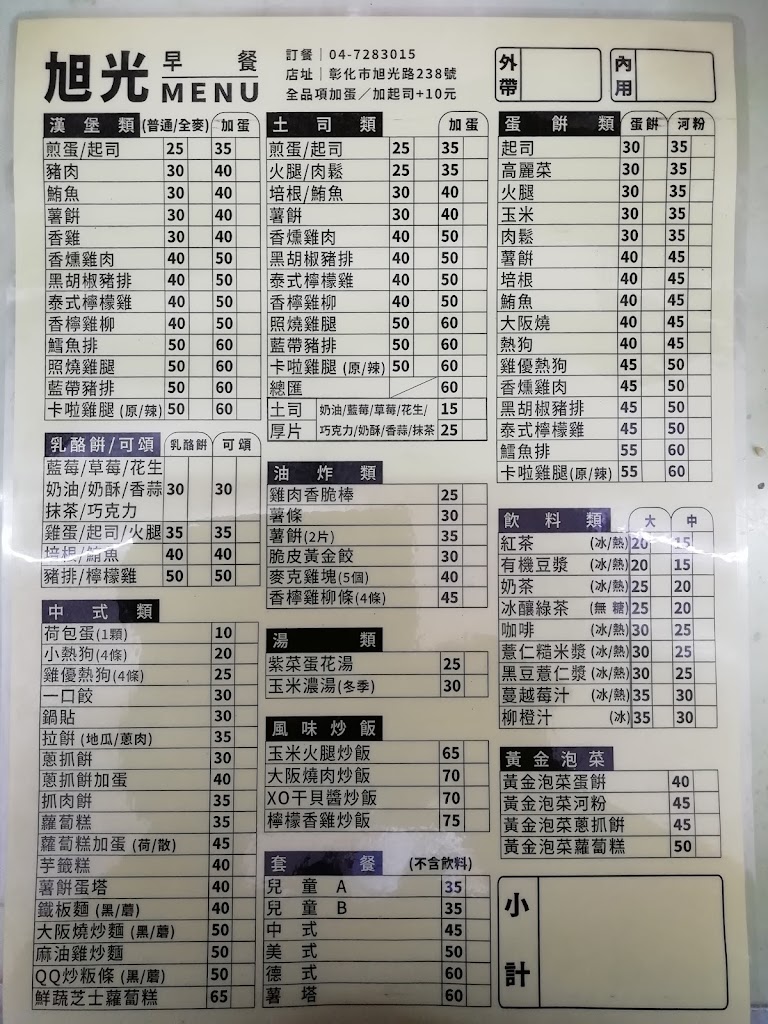 旭光 早餐 MENU
訂餐｜04-7283015
店址｜彰化市旭光路238號
全品項加蛋／加起司+10元
外帶
內用
漢堡類 (普通/全麥) 加蛋
煎蛋/起司 25 35
豬肉 30 40
鮪魚 30 40
薯餅 30 40
香雞 30 40
香燻雞肉 40 50
黑胡椒豬排 40 50
泰式檸檬雞 40 50
香檸雞柳 40 50
鱈魚排 50 60
照燒雞腿 50 60
藍帶豬排 50 60
卡啦雞腿 (原/辣) 50 60
乳酪餅/可頌 乳酪餅 可頌
藍莓/草莓/花生
奶油/奶酥/香蒜 30 30
抹茶/巧克力
雞蛋/起司/火腿 35 35
培根/鮪魚 40 40
豬排/檸檬雞 50 50
中式類
荷包蛋(1顆) 10
小熱狗(4條) 20
雞優熱狗(4條) 25
一口餃 30
鍋貼 30
拉餅 (地瓜/蔥肉) 35
蔥抓餅 30
蔥抓餅加蛋 40
抓肉餅 35
蘿蔔糕 35
蘿蔔糕加蛋 (荷/散) 45
芋籤糕 40
薯餅蛋塔 40
鐵板麵 (黑/蘑) 40
大阪燒炒麵 (黑/蘑) 50
麻油雞炒麵 50
QQ炒粄條 (黑/蘑) 50
鮮蔬芝士蘿蔔糕 65
土司類 加蛋
煎蛋/起司 25 35
火腿/肉鬆 25 35
培根/鮪魚 30 40
薯餅 30 40
香燻雞肉 40 50
黑胡椒豬排 40 50
泰式檸檬雞 40 50
香檸雞柳 40 50
照燒雞腿 50 60
藍帶豬排 50 60
卡啦雞腿 (原/辣) 50 60
總匯 60
土司 奶油/藍莓/草莓/花生/ 15
厚片 巧克力/奶酥/香蒜/抹茶 25
油炸類
雞肉香脆棒 25
薯條 30
薯餅(2片) 35
脆皮黃金餃 30
麥克雞塊(5個) 40
香檸雞柳條(4條) 45
湯類
紫菜蛋花湯 25
玉米濃湯(冬季) 30
風味炒飯
玉米火腿炒飯 65
大阪燒肉炒飯 70
XO干貝醬炒飯 70
檸檬香雞炒飯 75
套餐 (不含飲料)
兒童A 35
兒童B 35
中式 45
美式 50
德式 60
薯塔 60
蛋餅類 蛋餅 河粉
起司 30 35
高麗菜 30 35
火腿 30 35
玉米 30 35
肉鬆 30 35
薯餅 40 45
培根 40 45
鮪魚 40 45
大阪燒 40 45
熱狗 40 45
雞優熱狗 45 50
香燻雞肉 45 50
黑胡椒豬排 45 50
泰式檸檬雞 45 50
鱈魚排 55 60
卡啦雞腿(原/辣) 55 60
飲料類 大 中
紅茶 (冰/熱) 20 15
有機豆漿 (冰/熱) 20 15
奶茶 (冰/熱) 25 20
冰釀綠茶 (無糖) 25 20
咖啡 (冰/熱) 30 25
薏仁糙米漿 (冰/熱) 30 25
黑豆薏仁漿 (冰/熱) 30 25
蔓越莓汁 (冰/熱) 35 30
柳橙汁 (冰) 35 30
黃金泡菜
黃金泡菜蛋餅 40
黃金泡菜河粉 45
黃金泡菜蔥抓餅 45
黃金泡菜蘿蔔糕 50
小計